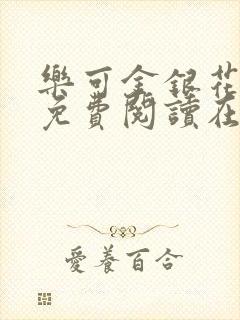 樂可金銀花
免費閱讀在
愛養百合